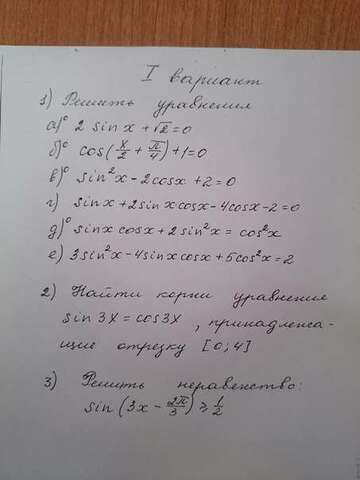 I вариант
1) Решить уравнения
а)° 2 sin x + √2 = 0
б)° cos(x/2 + π/4) + 1 = 0
в)° sin²x - 2cosx + 2 = 0
г) sinx + 2sinx cosx - 4cosx - 2 = 0
д)° sinx cosx + 2 sin²x = cos²x
е) 3sin²x - 4sinx cosx + 5cos²x = 2
2) Найти корни уравнения
sin 3x = cos3x, принадлежа-
щие отрезку [0; 4]
3) Решить неравенство:
sin (3x - 2π/3) ≥ 1/2